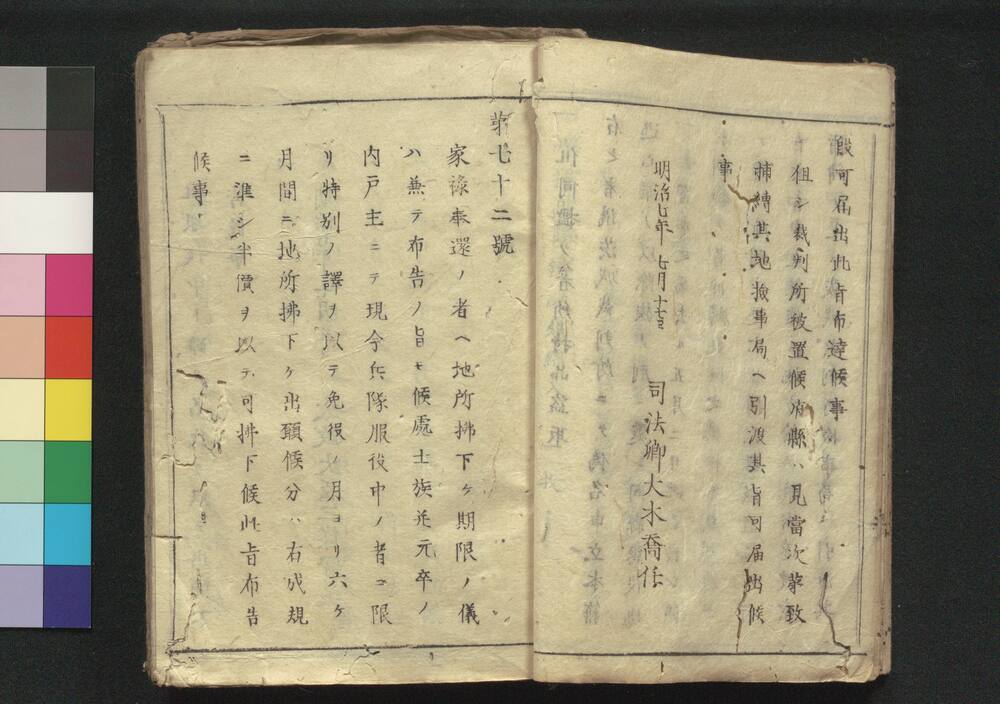 戯可届出此旨布達候事
但シ裁判所被置候府縣ハ見當次苐致
捕縛其地撿事局ヘ引渡其旨可届出候
事
明治七年七月十七日 司法卿大木喬任
苐七十二號
家祿奉還ノ者ヘ地所拂下ケ期限ノ儀
ハ兼テ布告ノ旨モ候處士族并元卒ノ
内戸主ニテ現今兵隊服役中ノ者ニ限
リ特別ノ譯ヲ以テ免役ノ月ヨリ六ケ
月間ニ地所拂下ケ出願候分ハ右成規
ニ準シ半價ヲ以テ可拂下候此旨布告
候事